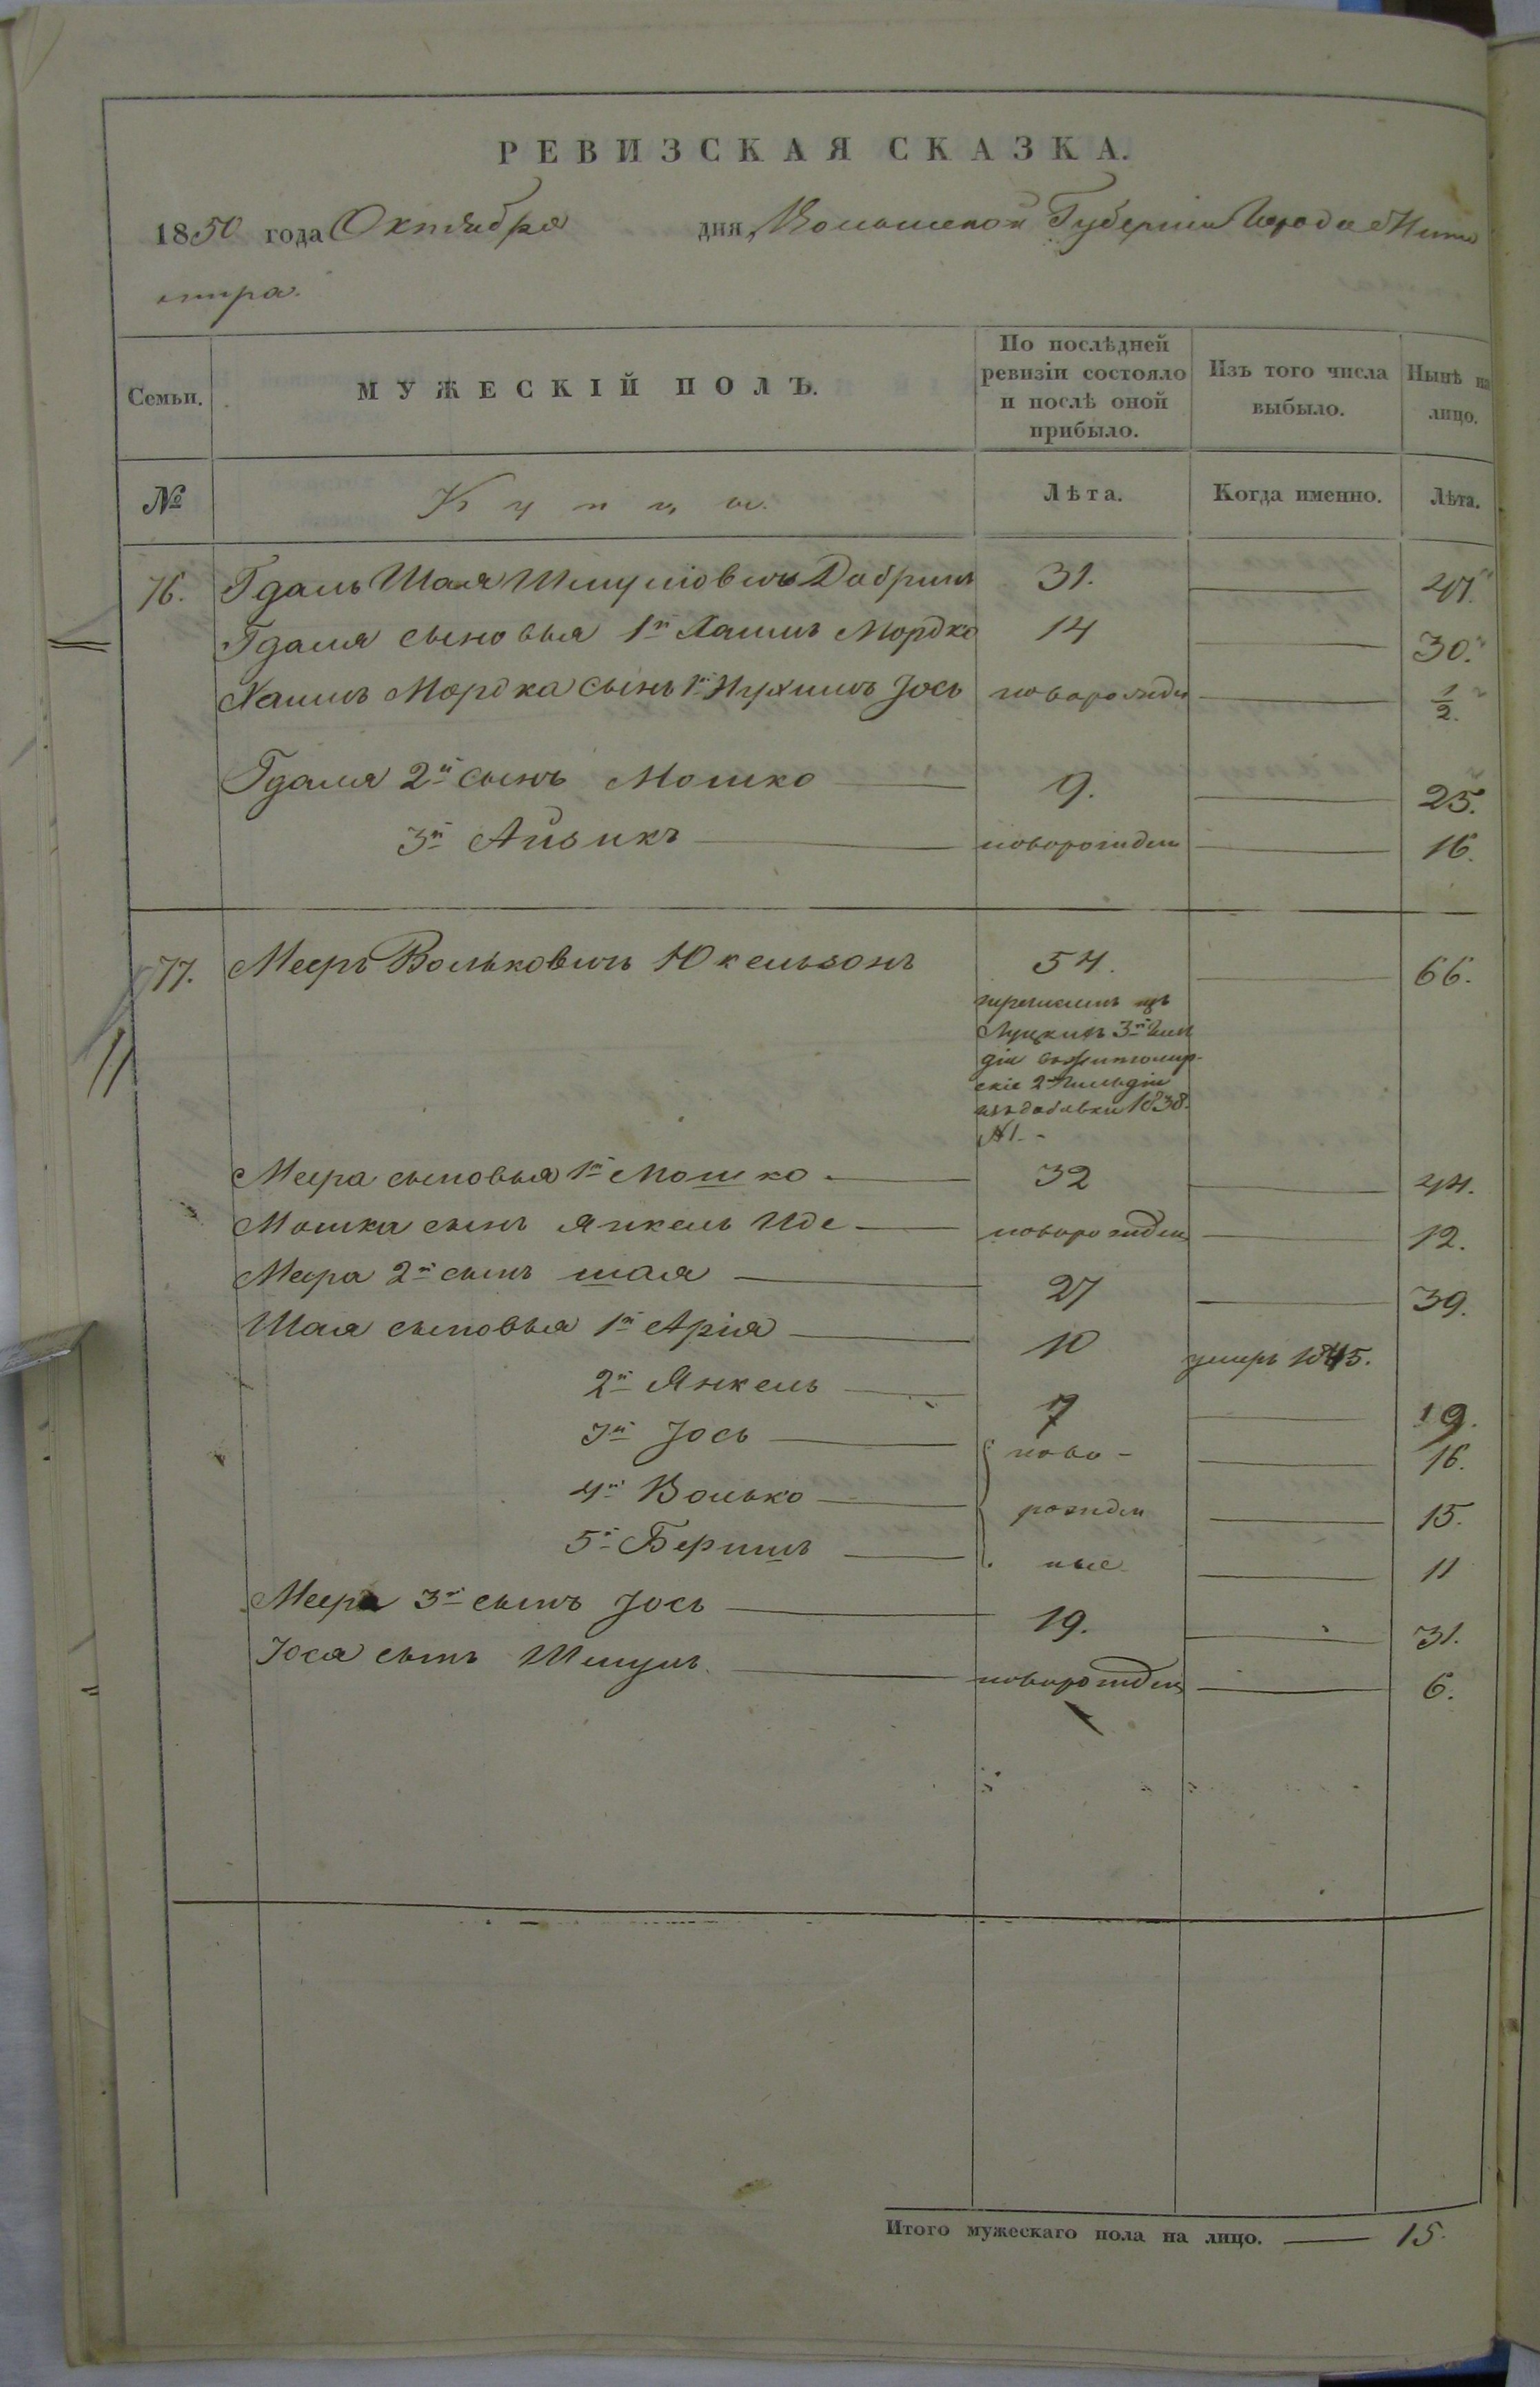 РЕВИЗСКАЯ СКАЗКА.
1850 года Октября дня, Волынской Губерніи Города Жито
мира.
Семьи. МУЖЕСКІЙ ПОЛЪ. По послѣдней ревизіи состояло и послѣ оной прибыло. Изъ того числа выбыло. Нынѣ на лицо.
№ Купцы. Лѣта. Когда именно. Лѣта.
76. Гдаль Шая Шмуліовичъ Добринъ 31. — 47.
Гдаля сыновья 1й Хаимъ Мордко 14 — 30.
Хаимъ Мордка сынъ 1й Нухимъ Іось новорожден — 1/2.
Гдаля 2й сынъ Мошко — 9. — 25.
3й Айзикъ — новорожден — 16.
77. Мееръ Вольковичъ Юкельзонъ 54. — 66.
перечисленъ изъ
Луцкихъ 3й Гиль
діи въ Житомир-
скіе 2й Гильдіи
изъ добавки 1838.
№ 1. -
Меера сыновья 1й Мошко — 32 — 44.
Мошка сынъ Янкель Иде — новорожден — 12.
Меера 2й сынъ Шая — 27 — 39.
Шая сыновья 1й Арія — 10 умеръ 1845.
2й Янкель — 7 — 19.
3й Іось — ново- — 16.
4й Волько — рожден — 15.
5й Беришъ — ные — 11
Меера 3й сынъ Іось — 19. — 31.
Іося сынъ Шмуль. — новорожден — 6.
Итого мужескаго пола на лицо. — 15.